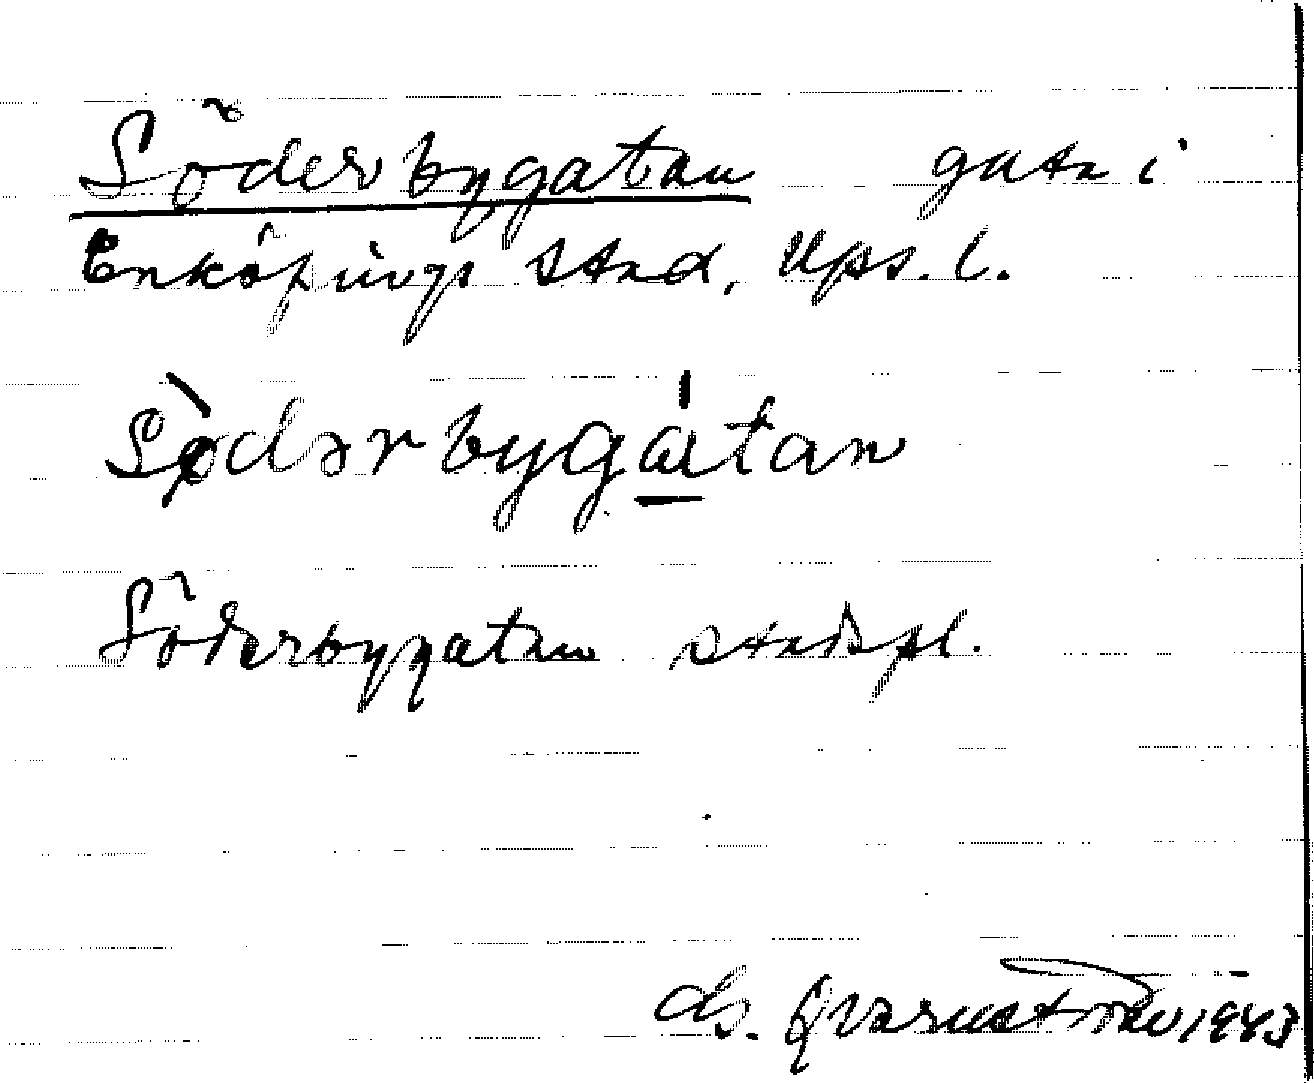 Söderbygatan gata i
Enköpings stad, Ups. l.
Sö̀dərbygátan
Söderbygatan stadspl.
ds. Qvarnström 1943